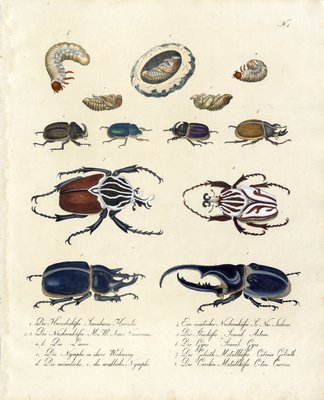 N. 1.
1. Der Herculeskäfer. Scarabaeus Hercules
2. 3. Der Nashornkäfer. M. W. Scar. Nasicornis
a. b. Die Larve.
c. Die Nymphe in ihrer Wohnung.
d. Die männliche, e. die weibliche Nymphe.
4. Ein exotischer Nashornkäfer. S.
5. Der
6. Der Gyas. Scarab. Gyas.
7. Der Goliath-Metallkäfer. Cetonia Goliath
8. Der Metallkäfer. Cetn. Cacicus